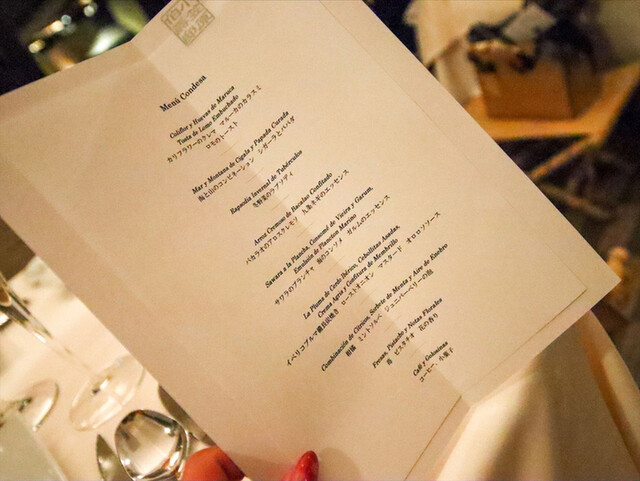 Menú Condesa
Coliflor y Huevas de Maruca
Tosta de Lomo Embuchado
カリフラワーのクレマ マルーカのカラスミ
ロモのトースト
Mar y Montana de Cigala y Papada Curada
海と山のコンビネーション シガーラとパパダ
Rapsodia Invernal de Tubérculos
冬野菜のラプソディ
Arroz Cremoso de Bacalao Confitado
バカラオのアロスクレモソ 九条ネギのエッセンス
Sawara a la Plancha, Consomé de Vieira y Garum,
Emulsión de Plancton Marino
サワラのプランチャ 海のコンソメ ガルムのエッセンス
La Pluma de Cerdo Ibérico, Cebollitas Asadas,
Crema Agria y Confitura de Membrillo
イベリコプルマ備長炭焼き ローストオニオン マスタード オロロソソース
Combinación de Cítricos, Sorbete de Menta y Aire de Enebro
柑橘 ミントソルベ ジュニパーベリーの泡
Fresas, Pistacho y Notas Florales
苺 ピスタチオ 花の香り
Café y Golosinas
コーヒー、小菓子